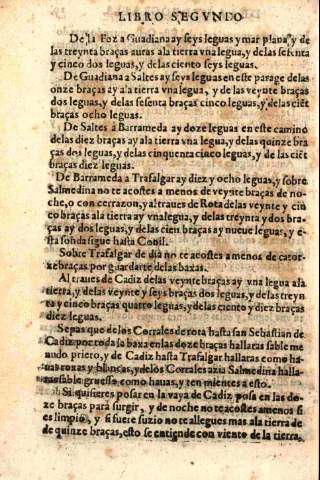 LIBRO SEGVNDO
De la Foz a Guadiana ay seys leguas y mar plana, y de
las treynta braças auras ala tierra vna legua, y delas sesenta
y cinco dos leguas, y delas ciento seys leguas.
De Guadiana a Saltes ay seys leguas en este parage delas
onze braças ay ala tierra vna legua, y de las veynte braças
dos leguas, y delas sesenta braças cinco leguas, y delas ciẽt
braças ocho leguas.
De Saltes a Barrameda ay doze leguas en este camino
delas diez braças ay ala tierra vna legua, y delas quinze bra
ças dos leguas, y delas cinquenta cinco leguas, y de las ciẽt
braças diez leguas.
De Barrameda a Trafalgar ay diez y ocho leguas, y sobre
Salmedina no te acostes a menos de veynte braças de no-
che, o con cerrazon, y al traues de Rota delas veynte y cin
co braças ala tierra ay vna legua, y delas treynta y dos bra-
ças ay dos leguas, y delas cien braças ay nueue leguas, y e-
sta sonda sigue hasta Conil.
Sobre Trafalgar de dia no te acostes a menos de cator-
ze braças por guardarte delas baxas.
Al traues de Cadiz delas veynte braças ay vna legua ala
tierra, y delas veynte y seys braças dos leguas, y delas treyn
ta y cinco braças quatro leguas, y delas ciento y diez braças
diez leguas.
Sepas que de los Corrales de rota hasta san Sebastian de
Cadiz por toda la baxa en las doze braças hallaras sable me
nudo prieto, y de Cadiz hasta Trafalgar hallaras como ha-
uas roxas y blancas, y delos Corrales azia Salmedina halla-
ras sable gruesso como hauas, y ten mientes a esto.
Si quisieres posar en la vaya de Cadiz posa en las do-
ze braças para surgir, y de noche no te acostes amenos si
es limpio, y si fuere suzio no te allegues mas ala tierra de
de quinze braças, esto se entiende con viento de la tierra.